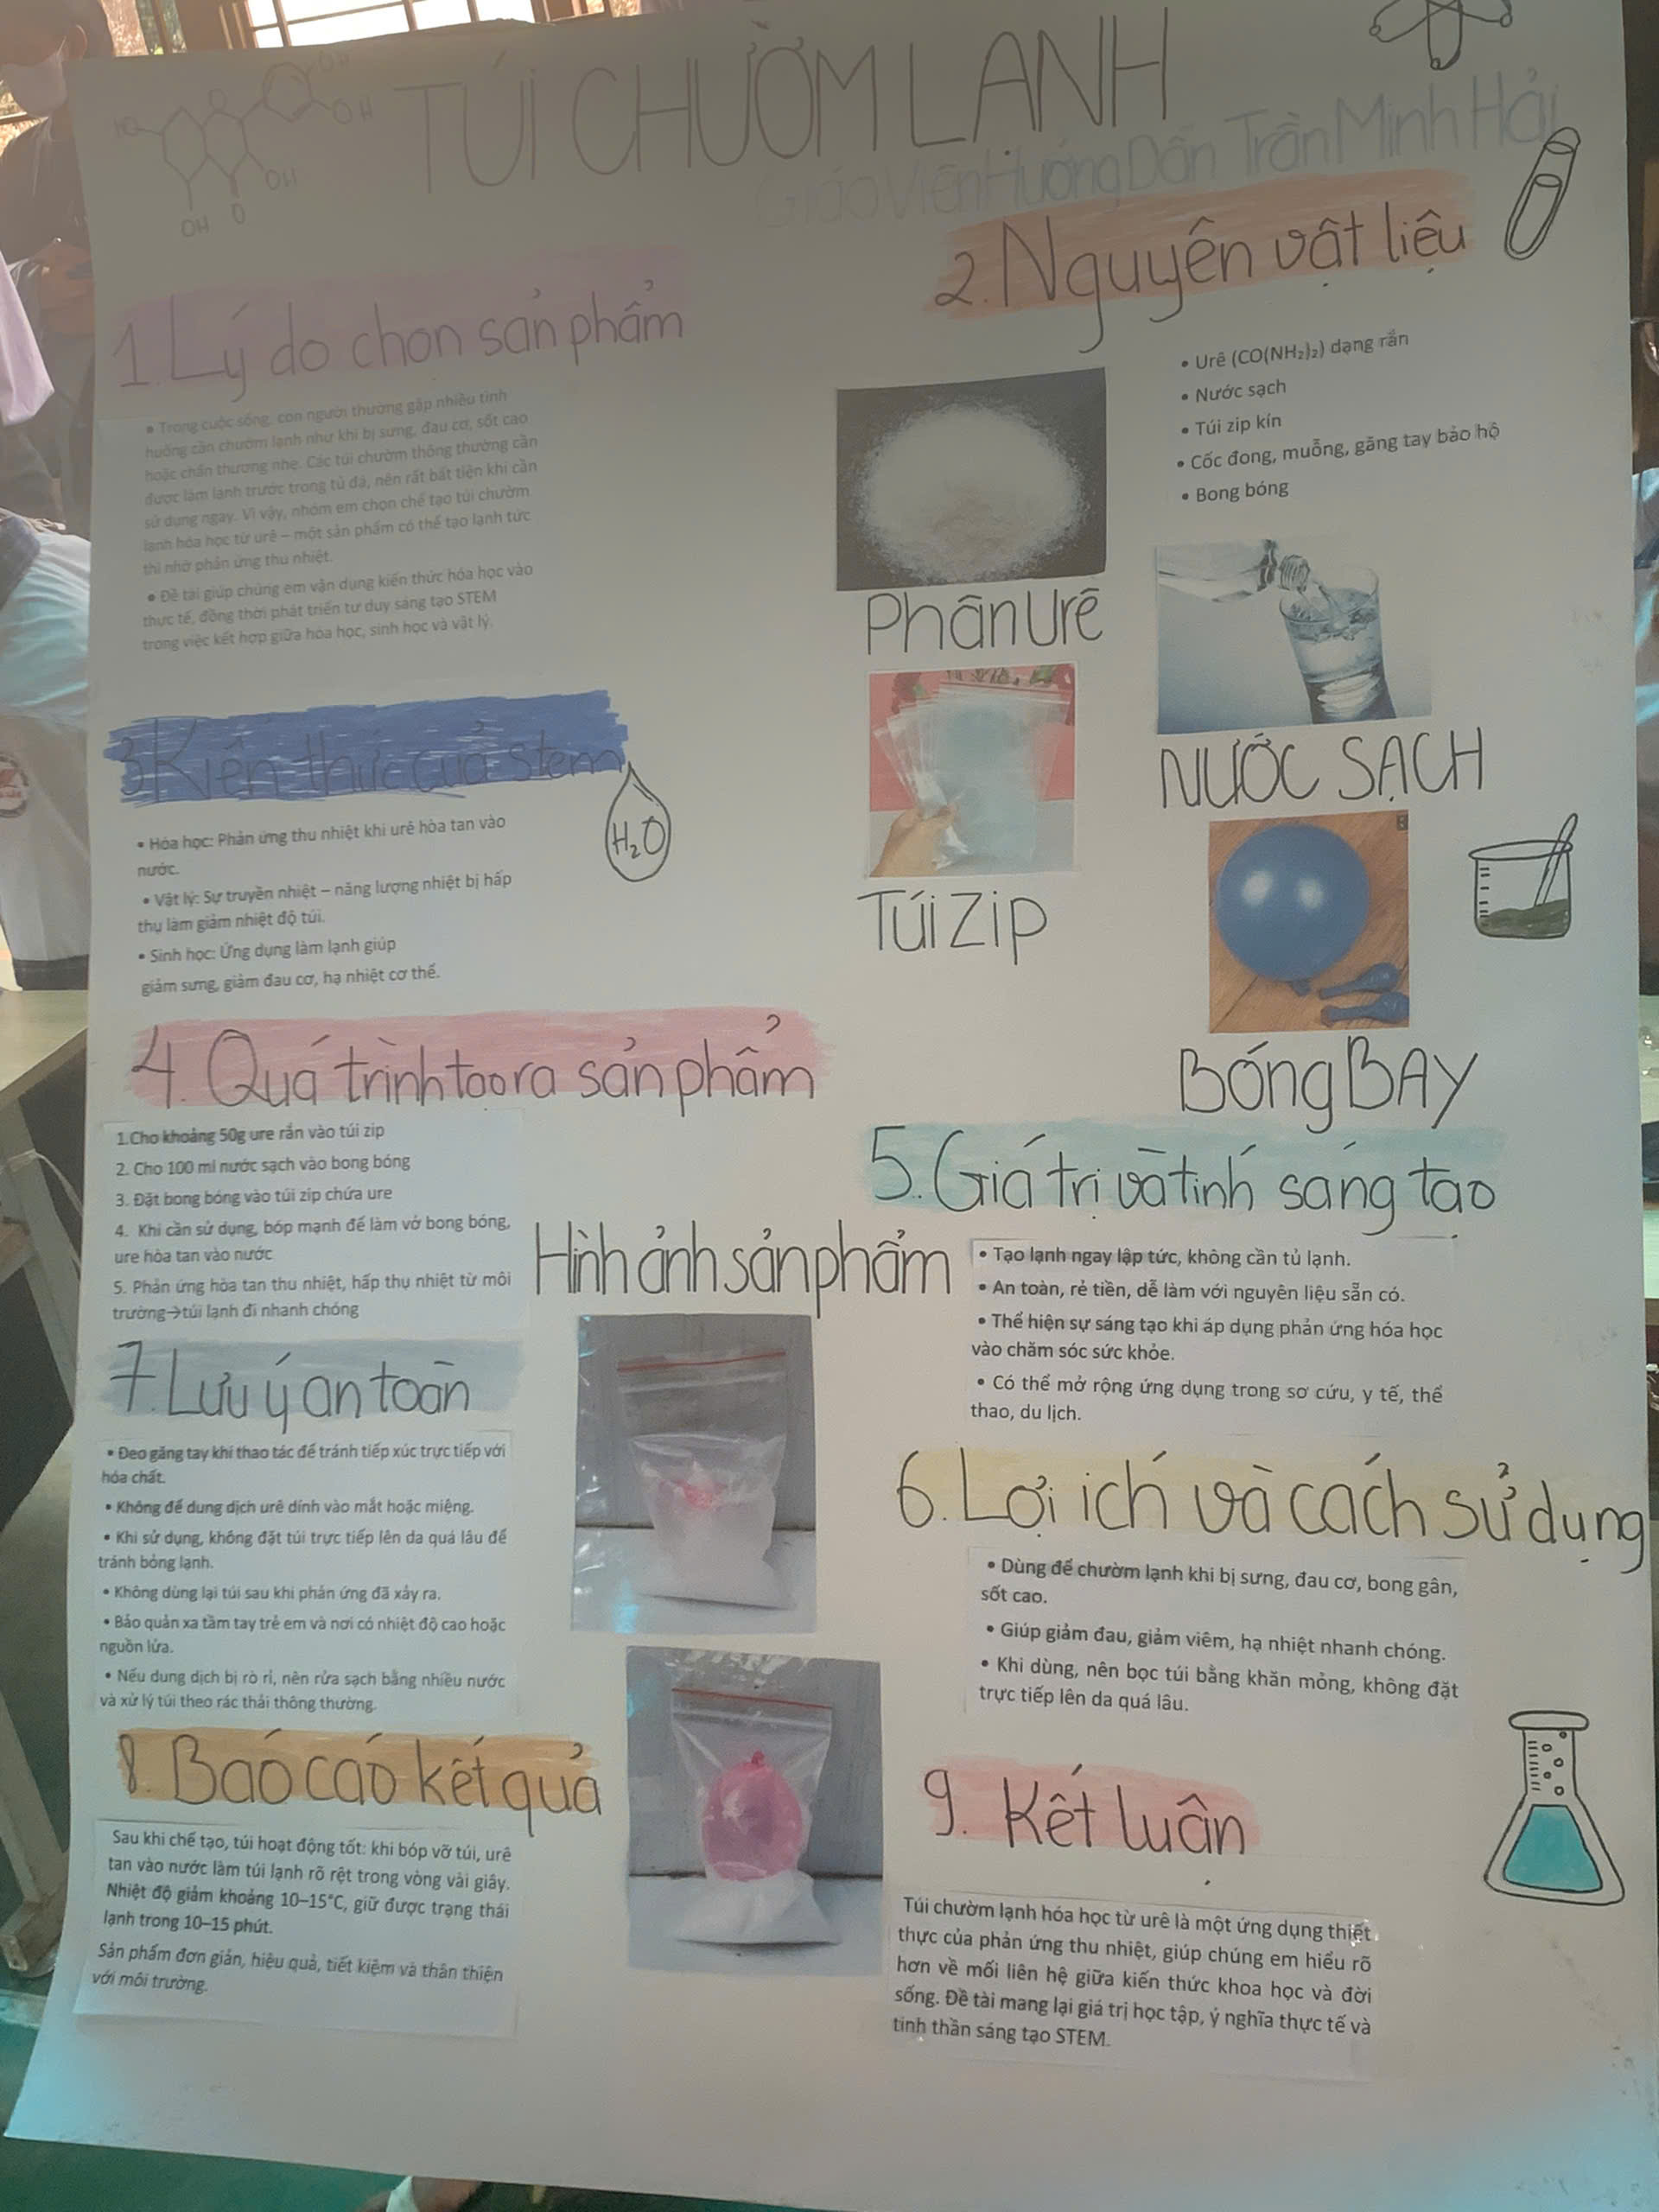 TÚI CHƯỜM LẠNH
Giáo Viên Hướng Dẫn Trần Minh Hải
HO
OH
OH
OH
O
1. Lý do chọn sản phẩm
• Trong cuộc sống, con người thường gặp nhiều tình
huống cần chườm lạnh như khi bị sưng, đau cơ, sốt cao
hoặc chấn thương nhẹ. Các túi chườm thông thường cần
được làm lạnh trước trong tủ đá, nên rất bất tiện khi cần
sử dụng ngay. Vì vậy, nhóm em chọn chế tạo túi chườm
lạnh hóa học từ urê – một sản phẩm có thể tạo lạnh tức
thì nhờ phản ứng thu nhiệt.
• Đề tài giúp chúng em vận dụng kiến thức hóa học vào
thực tế, đồng thời phát triển tư duy sáng tạo STEM
trong việc kết hợp giữa hóa học, sinh học và vật lý.
2. Nguyên vật liệu
• Urê (CO(NH₂)₂) dạng rắn
• Nước sạch
• Túi zip kín
• Cốc đong, muỗng, găng tay bảo hộ
• Bong bóng
Phân Urê
NƯỚC SẠCH
Túi Zip
BÓng BAY
3 Kiến thức của stem
H₂O
• Hóa học: Phản ứng thu nhiệt khi urê hòa tan vào
nước.
• Vật lý: Sự truyền nhiệt – năng lượng nhiệt bị hấp
thụ làm giảm nhiệt độ túi.
• Sinh học: Ứng dụng làm lạnh giúp
giảm sưng, giảm đau cơ, hạ nhiệt cơ thể.
4. Quá trình tạo ra sản phẩm
1.Cho khoảng 50g ure rắn vào túi zip
2. Cho 100 ml nước sạch vào bong bóng
3. Đặt bong bóng vào túi zip chứa ure
4. Khi cần sử dụng, bóp mạnh để làm vỡ bong bóng,
ure hòa tan vào nước
5. Phản ứng hòa tan thu nhiệt, hấp thụ nhiệt từ môi
trường→túi lạnh đi nhanh chóng
Hình ảnh sản phẩm
5. Giá trị và tính sáng tạo
• Tạo lạnh ngay lập tức, không cần tủ lạnh.
• An toàn, rẻ tiền, dễ làm với nguyên liệu sẵn có.
• Thể hiện sự sáng tạo khi áp dụng phản ứng hóa học
vào chăm sóc sức khỏe.
• Có thể mở rộng ứng dụng trong sơ cứu, y tế, thể
thao, du lịch.
6. Lợi ích và cách sử dụng
• Dùng để chườm lạnh khi bị sưng, đau cơ, bong gân,
sốt cao.
• Giúp giảm đau, giảm viêm, hạ nhiệt nhanh chóng.
• Khi dùng, nên bọc túi bằng khăn mỏng, không đặt
trực tiếp lên da quá lâu.
7. Lưu ý an toàn
• Đeo găng tay khi thao tác để tránh tiếp xúc trực tiếp với
hóa chất.
• Không để dung dịch urê dính vào mắt hoặc miệng.
• Khi sử dụng, không đặt túi trực tiếp lên da quá lâu để
tránh bỏng lạnh.
• Không dùng lại túi sau khi phản ứng đã xảy ra.
• Bảo quản xa tầm tay trẻ em và nơi có nhiệt độ cao hoặc
nguồn lửa.
• Nếu dung dịch bị rò rỉ, nên rửa sạch bằng nhiều nước
và xử lý túi theo rác thải thông thường.
8. Báo cáo kết quả
Sau khi chế tạo, túi hoạt động tốt: khi bóp vỡ túi, urê
tan vào nước làm túi lạnh rõ rệt trong vòng vài giây.
Nhiệt độ giảm khoảng 10–15°C, giữ được trạng thái
lạnh trong 10–15 phút.
Sản phẩm đơn giản, hiệu quả, tiết kiệm và thân thiện
với môi trường.
9. Kết luận
Túi chườm lạnh hóa học từ urê là một ứng dụng thiết
thực của phản ứng thu nhiệt, giúp chúng em hiểu rõ
hơn về mối liên hệ giữa kiến thức khoa học và đời
sống. Đề tài mang lại giá trị học tập, ý nghĩa thực tế và
tinh thần sáng tạo STEM.